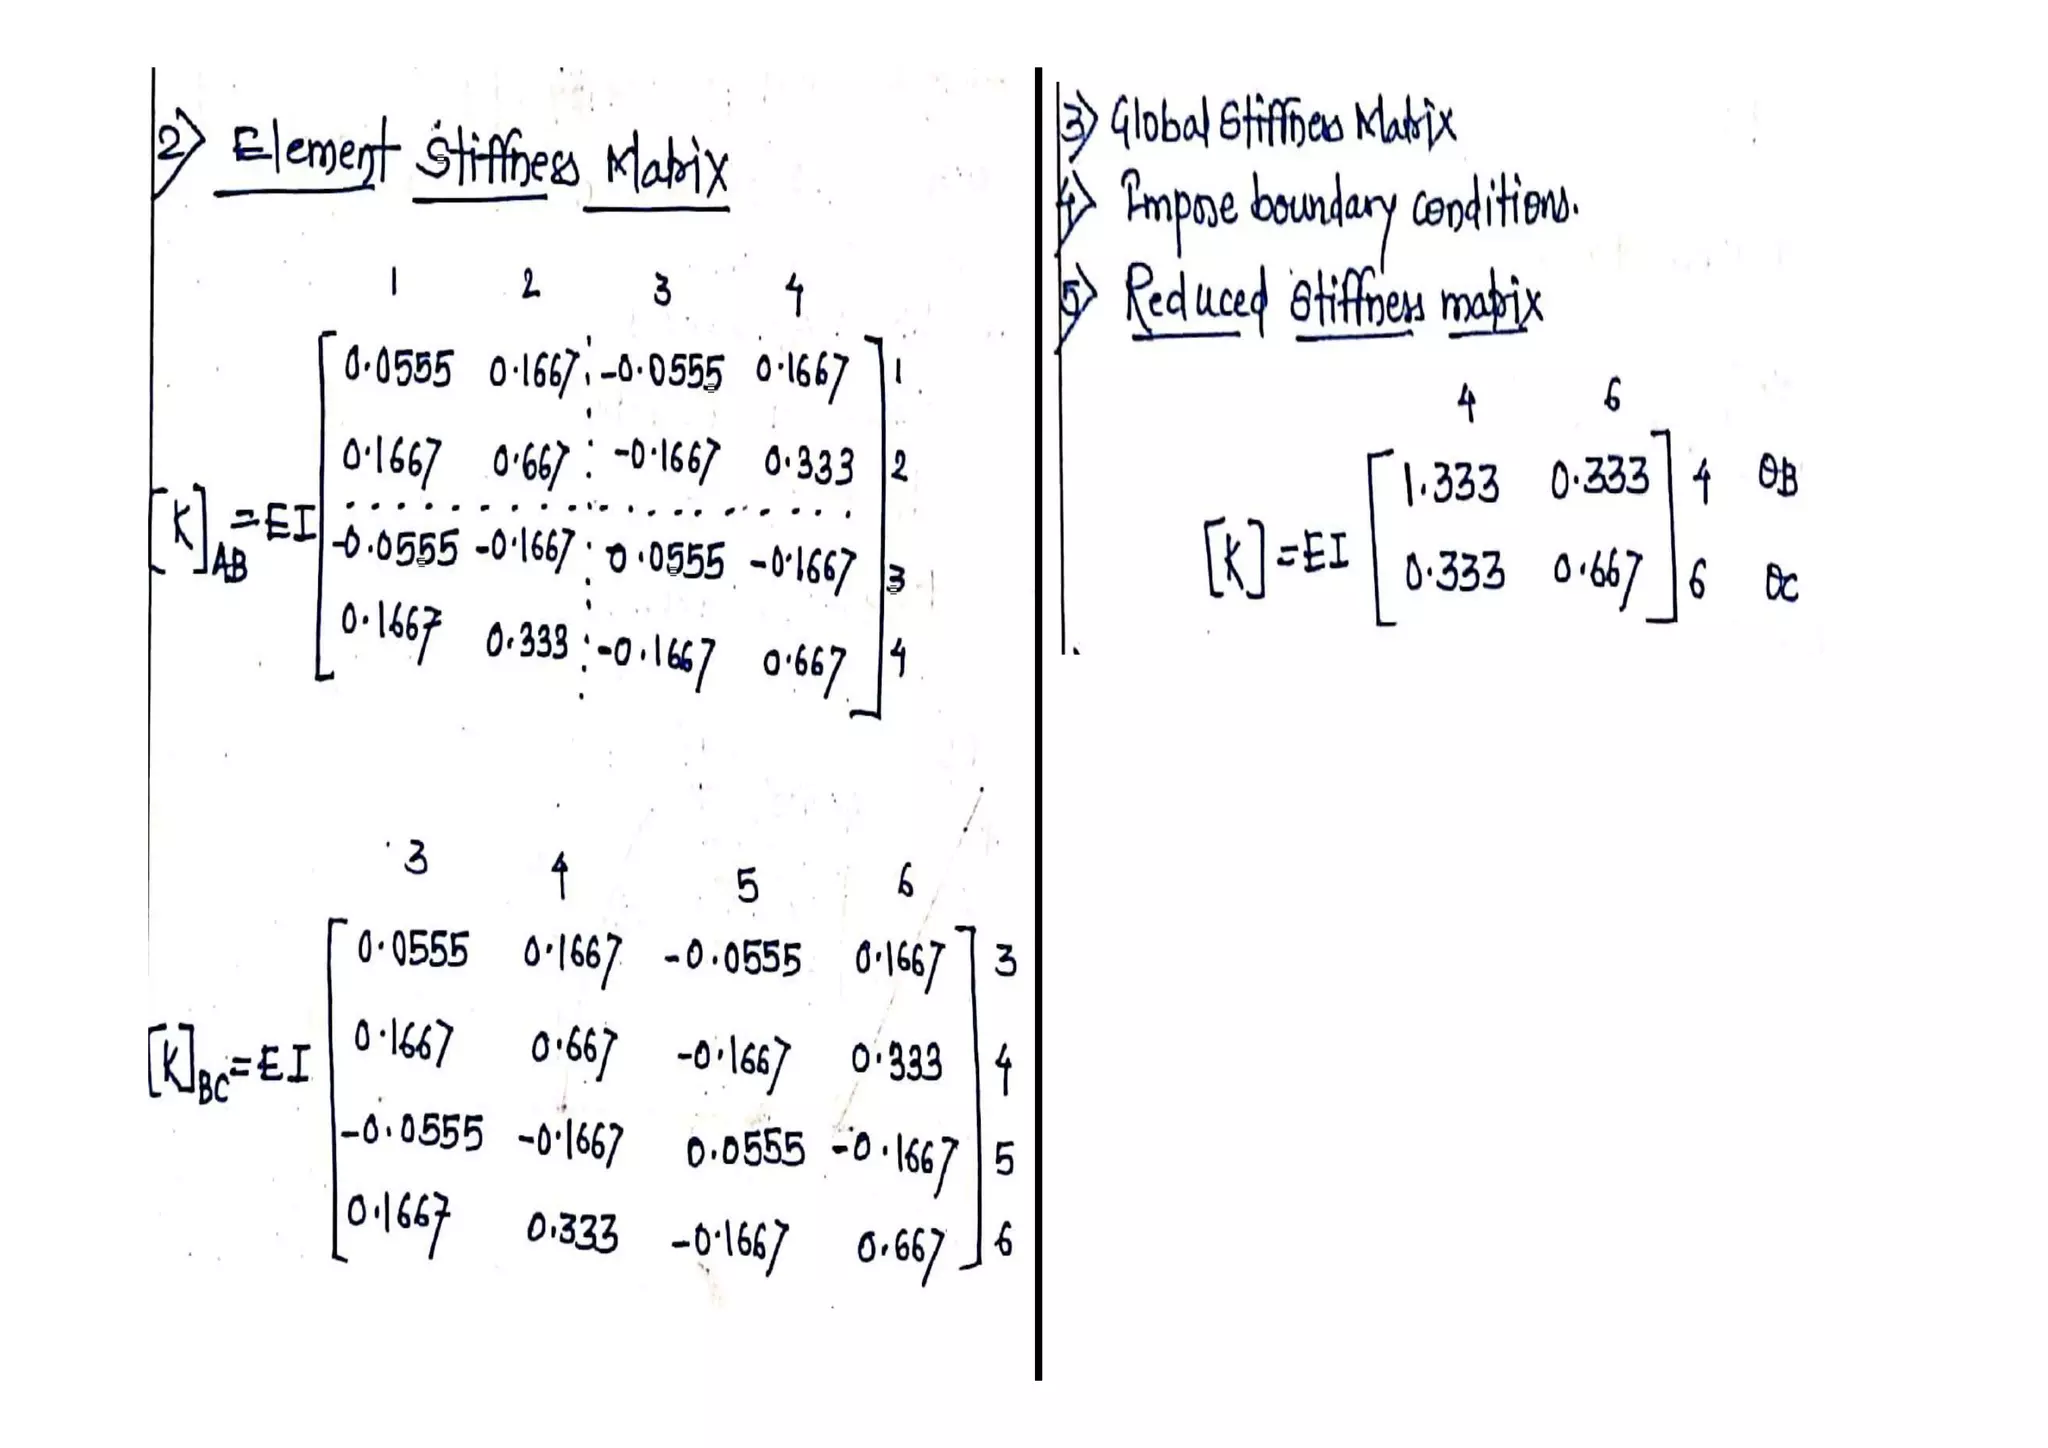 2) Element Stiffness Matrix
1 2 3 4
0.0555 0.1667 -0.0555 0.1667 1
0.1667 0.667 -0.1667 0.333 2
[K]AB = EI
-0.0555 -0.1667 0.0555 -0.1667 3
0.1667 0.333 -0.1667 0.667 4
3 4 5 6
0.0555 0.1667 -0.0555 0.1667 3
0.1667 0.667 -0.1667 0.333 4
[K]BC = EI
-0.0555 -0.1667 0.0555 -0.1667 5
0.1667 0.333 -0.1667 0.667 6
3) Global Stiffness Matrix
4) Impose boundary conditions.
5) Reduced stiffness matrix
4 6
1.333 0.333 4 θB
[K] = EI
0.333 0.667 6 θC